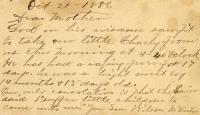 Oct 21 - 1886
Dear Mother
God in his wisdom saw fit
to take our little Charly from
us this morning at 4-40 o'clock
He has had a raging fever for 17
days. he was a bright sweet boy
months & 13 days old.
Our only consolation is that the Savior
said Suffer little children to
come unto me Your Son Wilson